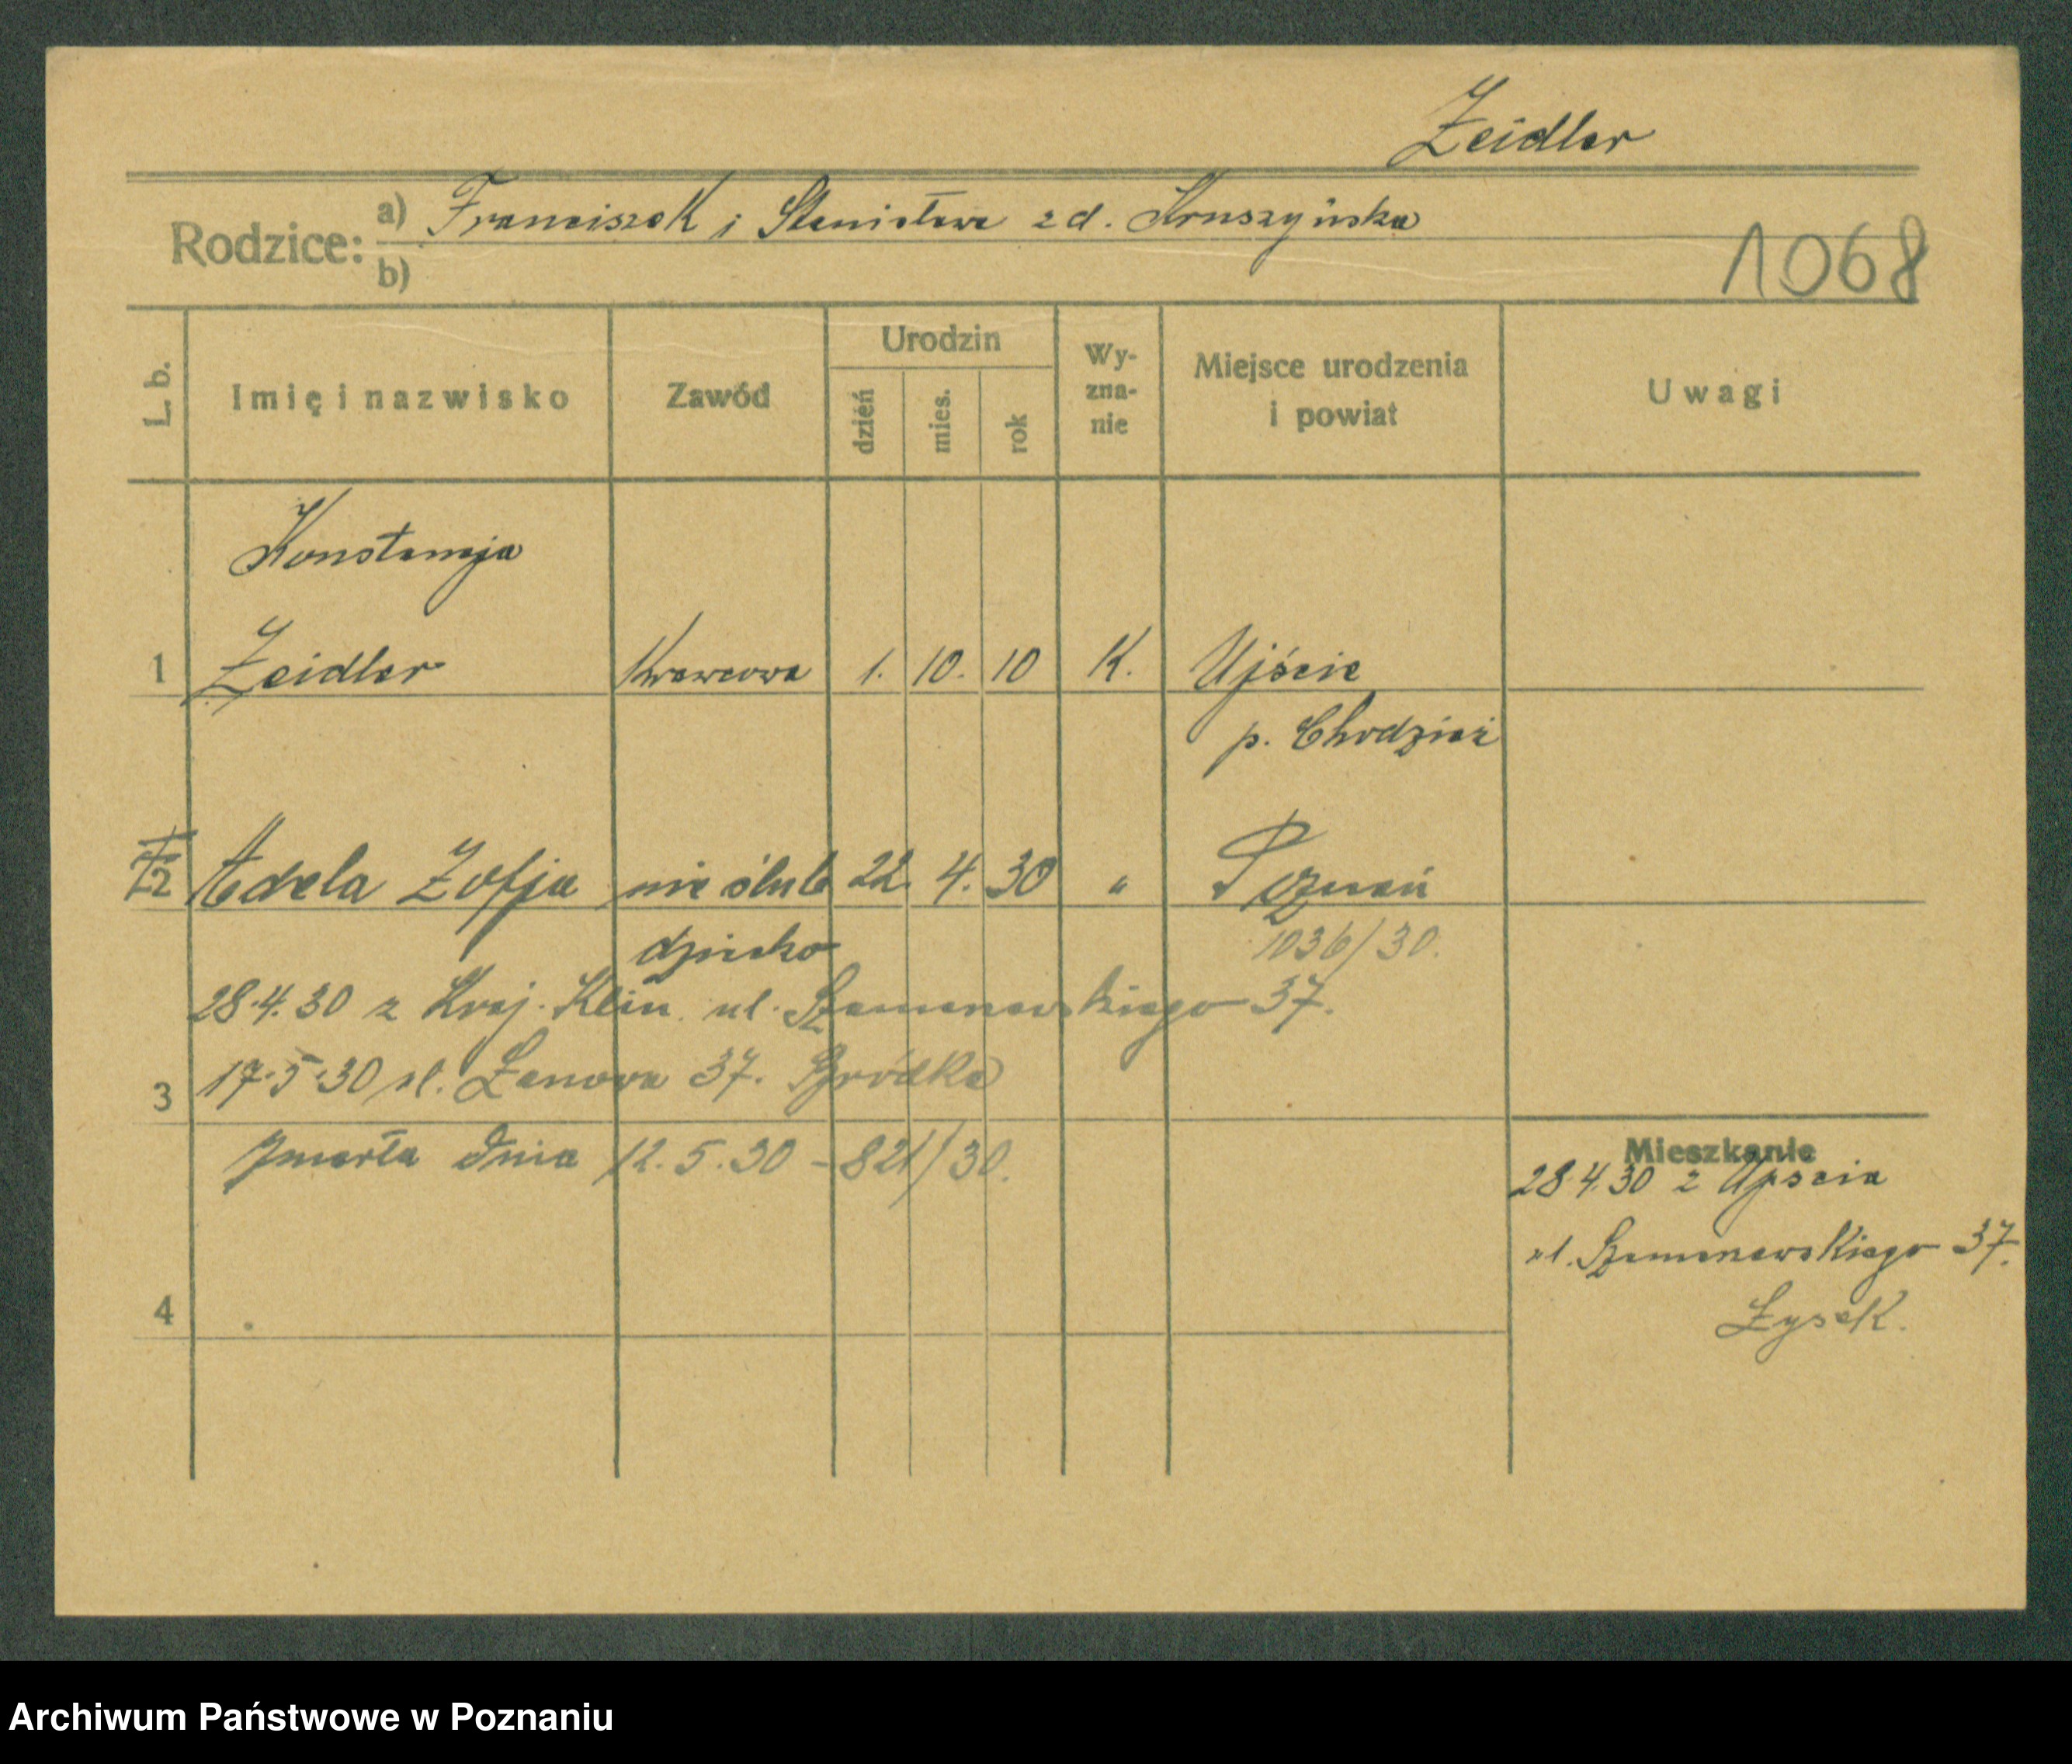 Zeidler
Rodzice: a) Franciszek i Stanisława z d. Kruszyńska
b)
1068
L. b. Imię i nazwisko Zawód Urodzin dzień mies. rok Wy-zna-nie Miejsce urodzenia i powiat Uwagi
Konstancja
1 Zeidler Krawcowa 1. 10. 10 K. Ujście
p. Chodzież
2 Adela Zofja nie ślub 22. 4. 30 " Poznań
dziecko 1036/30.
28.4.30 z Kraj. Klin. ul. Szamarzewskiego 37.
3 17.5.30 ul. Łanowa 37.
Zmarła dnia 12.5.30 - 821/30.
Mieszkanie
28.4.30 z Ujścia
ul. Szamarzewskiego 37.
4 Łysek.
Archiwum Państwowe w Poznaniu